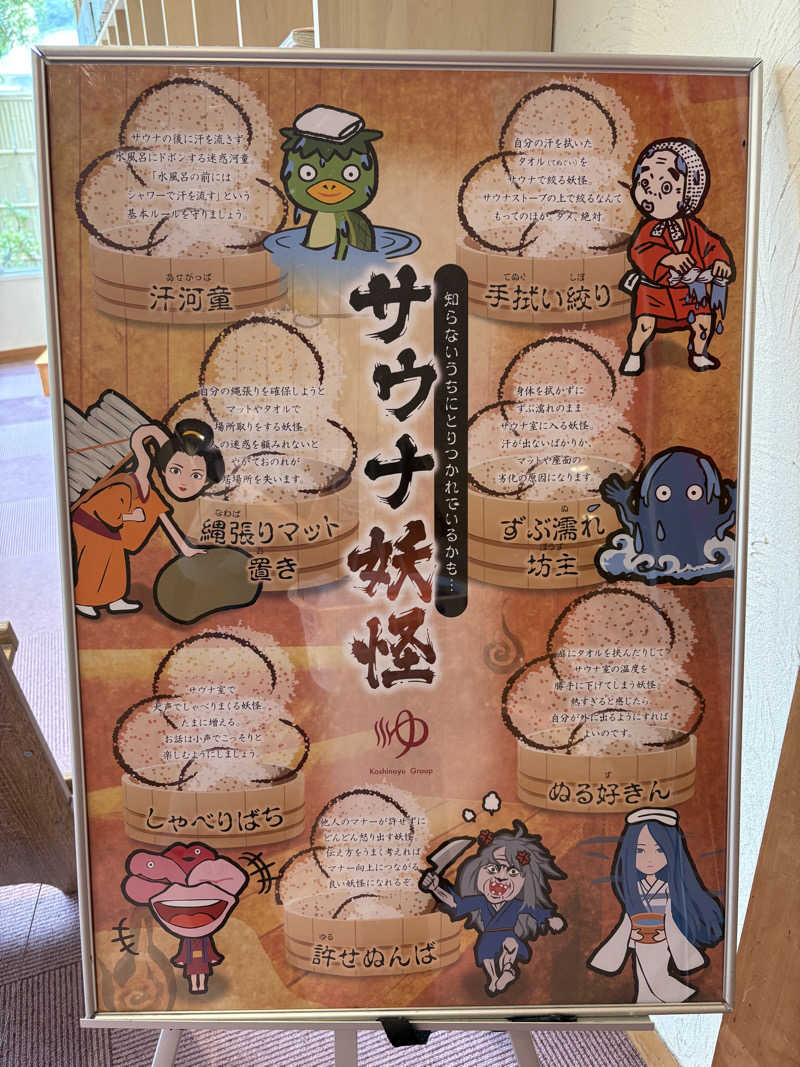 サウナの後に汗を流さず
水風呂にドボンする迷惑河童
「水風呂の前には
シャワーで汗を流す」という
基本ルールを守りましょう。
あせがっぱ
汗河童
自分の汗を拭いた
タオル(てぬぐい)を
サウナで絞る妖怪。
サウナストーブの上で絞るなんて
もってのほか、ダメ、絶対
てぬぐ しぼ
手拭い絞り
知らないうちにとりつかれているかも…
サウナ妖怪
自分の縄張りを確保しようと
マットやタオルで
場所取りをする妖怪。
人の迷惑を顧みれないと
やがておのれが
居場所を失います。
なわば
縄張りマット
お
置き
身体を拭かずに
ずぶ濡れのまま
サウナ室に入る妖怪。
汗が出ないばかりか、
マットや座面の
劣化の原因になります。
ぬ
ずぶ濡れ
ぼうず
坊主
サウナ室で
大声でしゃべりまくる妖怪。
たまに増える。
お話は小声でこっそりと
楽しむようにしましょう。
しゃべりばち
扉にタオルを挟んだりして
サウナ室の温度を
勝手に下げてしまう妖怪。
熱すぎると感じたら
自分が外に出るようにすれば
よいのです。
す
ぬる好きん
ゆ
Koshinoyu Group
他人のマナーが許せずに
どんどん怒り出す妖怪。
伝え方をうまく考えれば
マナー向上につながる
良い妖怪になれるぞ。
ゆる
許せぬんば